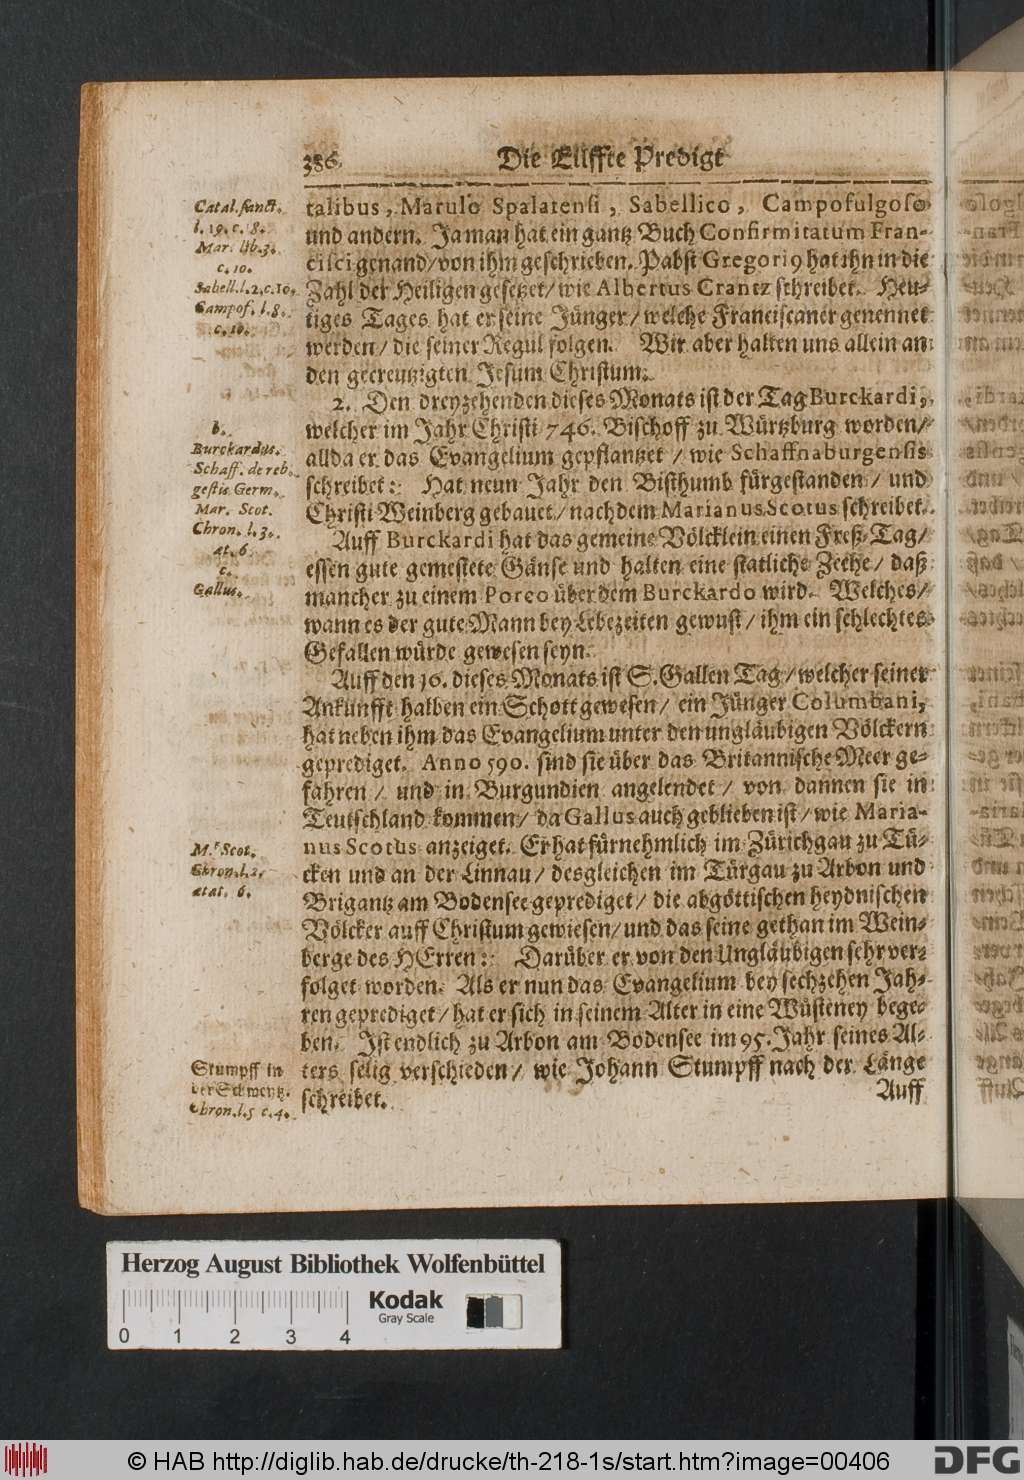 386.
Die Eilffte Predigt
talibus, Marulo Spalatensi, Sabellico, Campofulgoso
und andern. Ja man hat ein gantz Buch Confirmitatum Fran-
cisci genand/ von ihm geschrieben. Pabst Gregori9 hat ihn in die
Zahl der Heiligen gesetzet/ wie Albertus Crantz schreibet. Heu-
tiges Tages hat er seine Jünger/ welche Franciscaner genennet
werden/ die seiner Regul folgen. Wir aber halten uns allein an
den gecreutzigten Jesum Christum.
2. Den dreyzehenden dieses Monats ist der Tag Burckardi,
welcher im Jahr Christi 746. Bischoff zu Würtzburg worden/
allda er das Evangelium gepflantzet / wie Schaffnaburgensis
schreibet: Hat neun Jahr den Bisthumb fürgestanden / und
Christi Weinberg gebauet/ nach dem Marianus Scotus schreibet.
Auff Burckardi hat das gemeine Völcklein einen Freß-Tag/
essen gute gemestete Gänse und halten eine statliche Zeche/ daß
mancher zu einem Porco über dem Burckardo wird. Welches/
wann es der gute Mann bey Lebezeiten gewust/ ihm ein schlechtes
Gefallen würde gewesen seyn.
Auff den 16. dieses Monats ist S. Gallen Tag/ welcher seiner
Ankunfft halben ein Schott gewesen/ ein Jünger Columbani,
hat neben ihm das Evangelium unter den ungläubigen Völckern
geprediget. Anno 590. sind sie über das Britannische Meer ge-
fahren / und in Burgundien angelendet / von dannen sie in
Teutschland kommen/ da Gallus auch geblieben ist/ wie Maria-
nus Scotus anzeiget. Er hat fürnehmlich im Zürichgau zu Tü-
cken und an der Linnau/ desgleichen im Türgau zu Arbon und
Brigantz am Bodensee geprediget/ die abgöttischen heydnischen
Völcker auff Christum gewiesen/ und das seine gethan im Wein-
berge des HErren: Darüber er von den Ungläubigen sehr ver-
folget worden. Als er nun das Evangelium bey sechzehen Jah-
ren geprediget/ hat er sich in seinem Alter in eine Wüsteney bege-
ben. Ist endlich zu Arbon am Bodensee im 95. Jahr seines Al-
ters selig verschieden/ wie Johann Stumpff nach der Länge
schreibet.
Auff
Catal. sanct.
l. 19. c. 8.
Mar. lib. 3.
c. 10.
Sabell. l. 2. c. 10.
Campof. l. 8.
c. 10.
b.
Burckardus.
Schaff. de reb.
gestis Germ.
Mar. Scot.
Chron. l. 3.
æt. 6.
c.
Gallus.
M. Scot.
Chron. l. 2.
ætat. 6.
Stumpff in
der Schweytz.
Chron. l. 5 c. 4.
Herzog August Bibliothek Wolfenbüttel
Kodak
Gray Scale
0 1 2 3 4
© HAB http://diglib.hab.de/drucke/th-218-1s/start.htm?image=00406
DFG